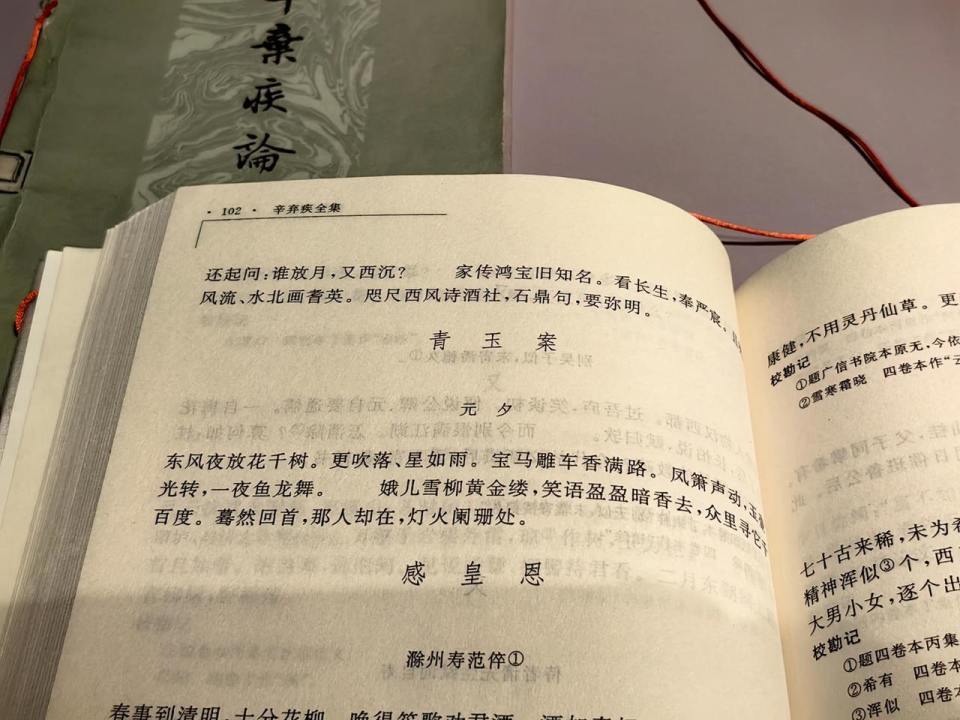 棄疾論
· 102 · 辛弃疾全集
还起问:谁放月,又西沉? 家传鸿宝旧知名。看长生,奉严宸。
风流、水北画耆英。咫尺西风诗酒社,石鼎句,要弥明。
青 玉 案
元 夕
东风夜放花千树。更吹落、星如雨。宝马雕车香满路。凤箫声动,玉
光转,一夜鱼龙舞。 娥儿雪柳黄金缕,笑语盈盈暗香去,众里寻它千
百度。蓦然回首,那人却在,灯火阑珊处。
感 皇 恩
滁州寿范倅①
春事到清明,十分花柳。唤得笙歌劝君酒。酒如春好
康健,不用灵丹仙草。更
校勘记
①题广信书院本原无,今依
②雪寒霜晓 四卷本作“云
七十古来稀,未为希
精神浑似③个,西
大男小女,逐个出
校勘记
①题四卷本丙集
②希有 四卷本
③浑似 四卷